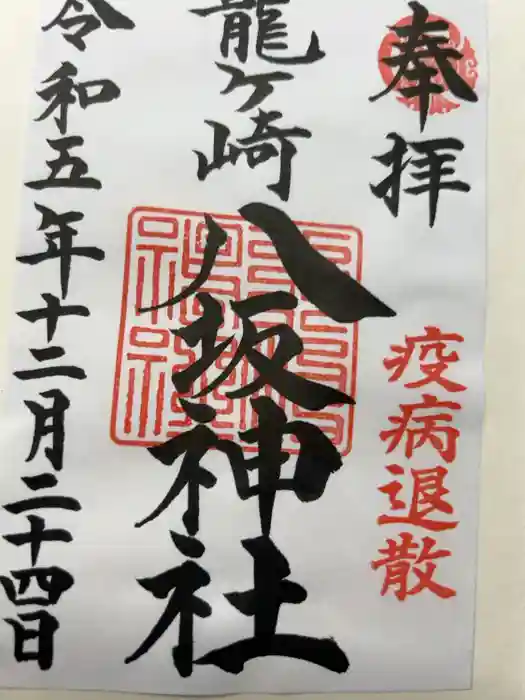 奉拝
疫病退散
龍ヶ崎
八坂神社
令和五年十二月二十四日